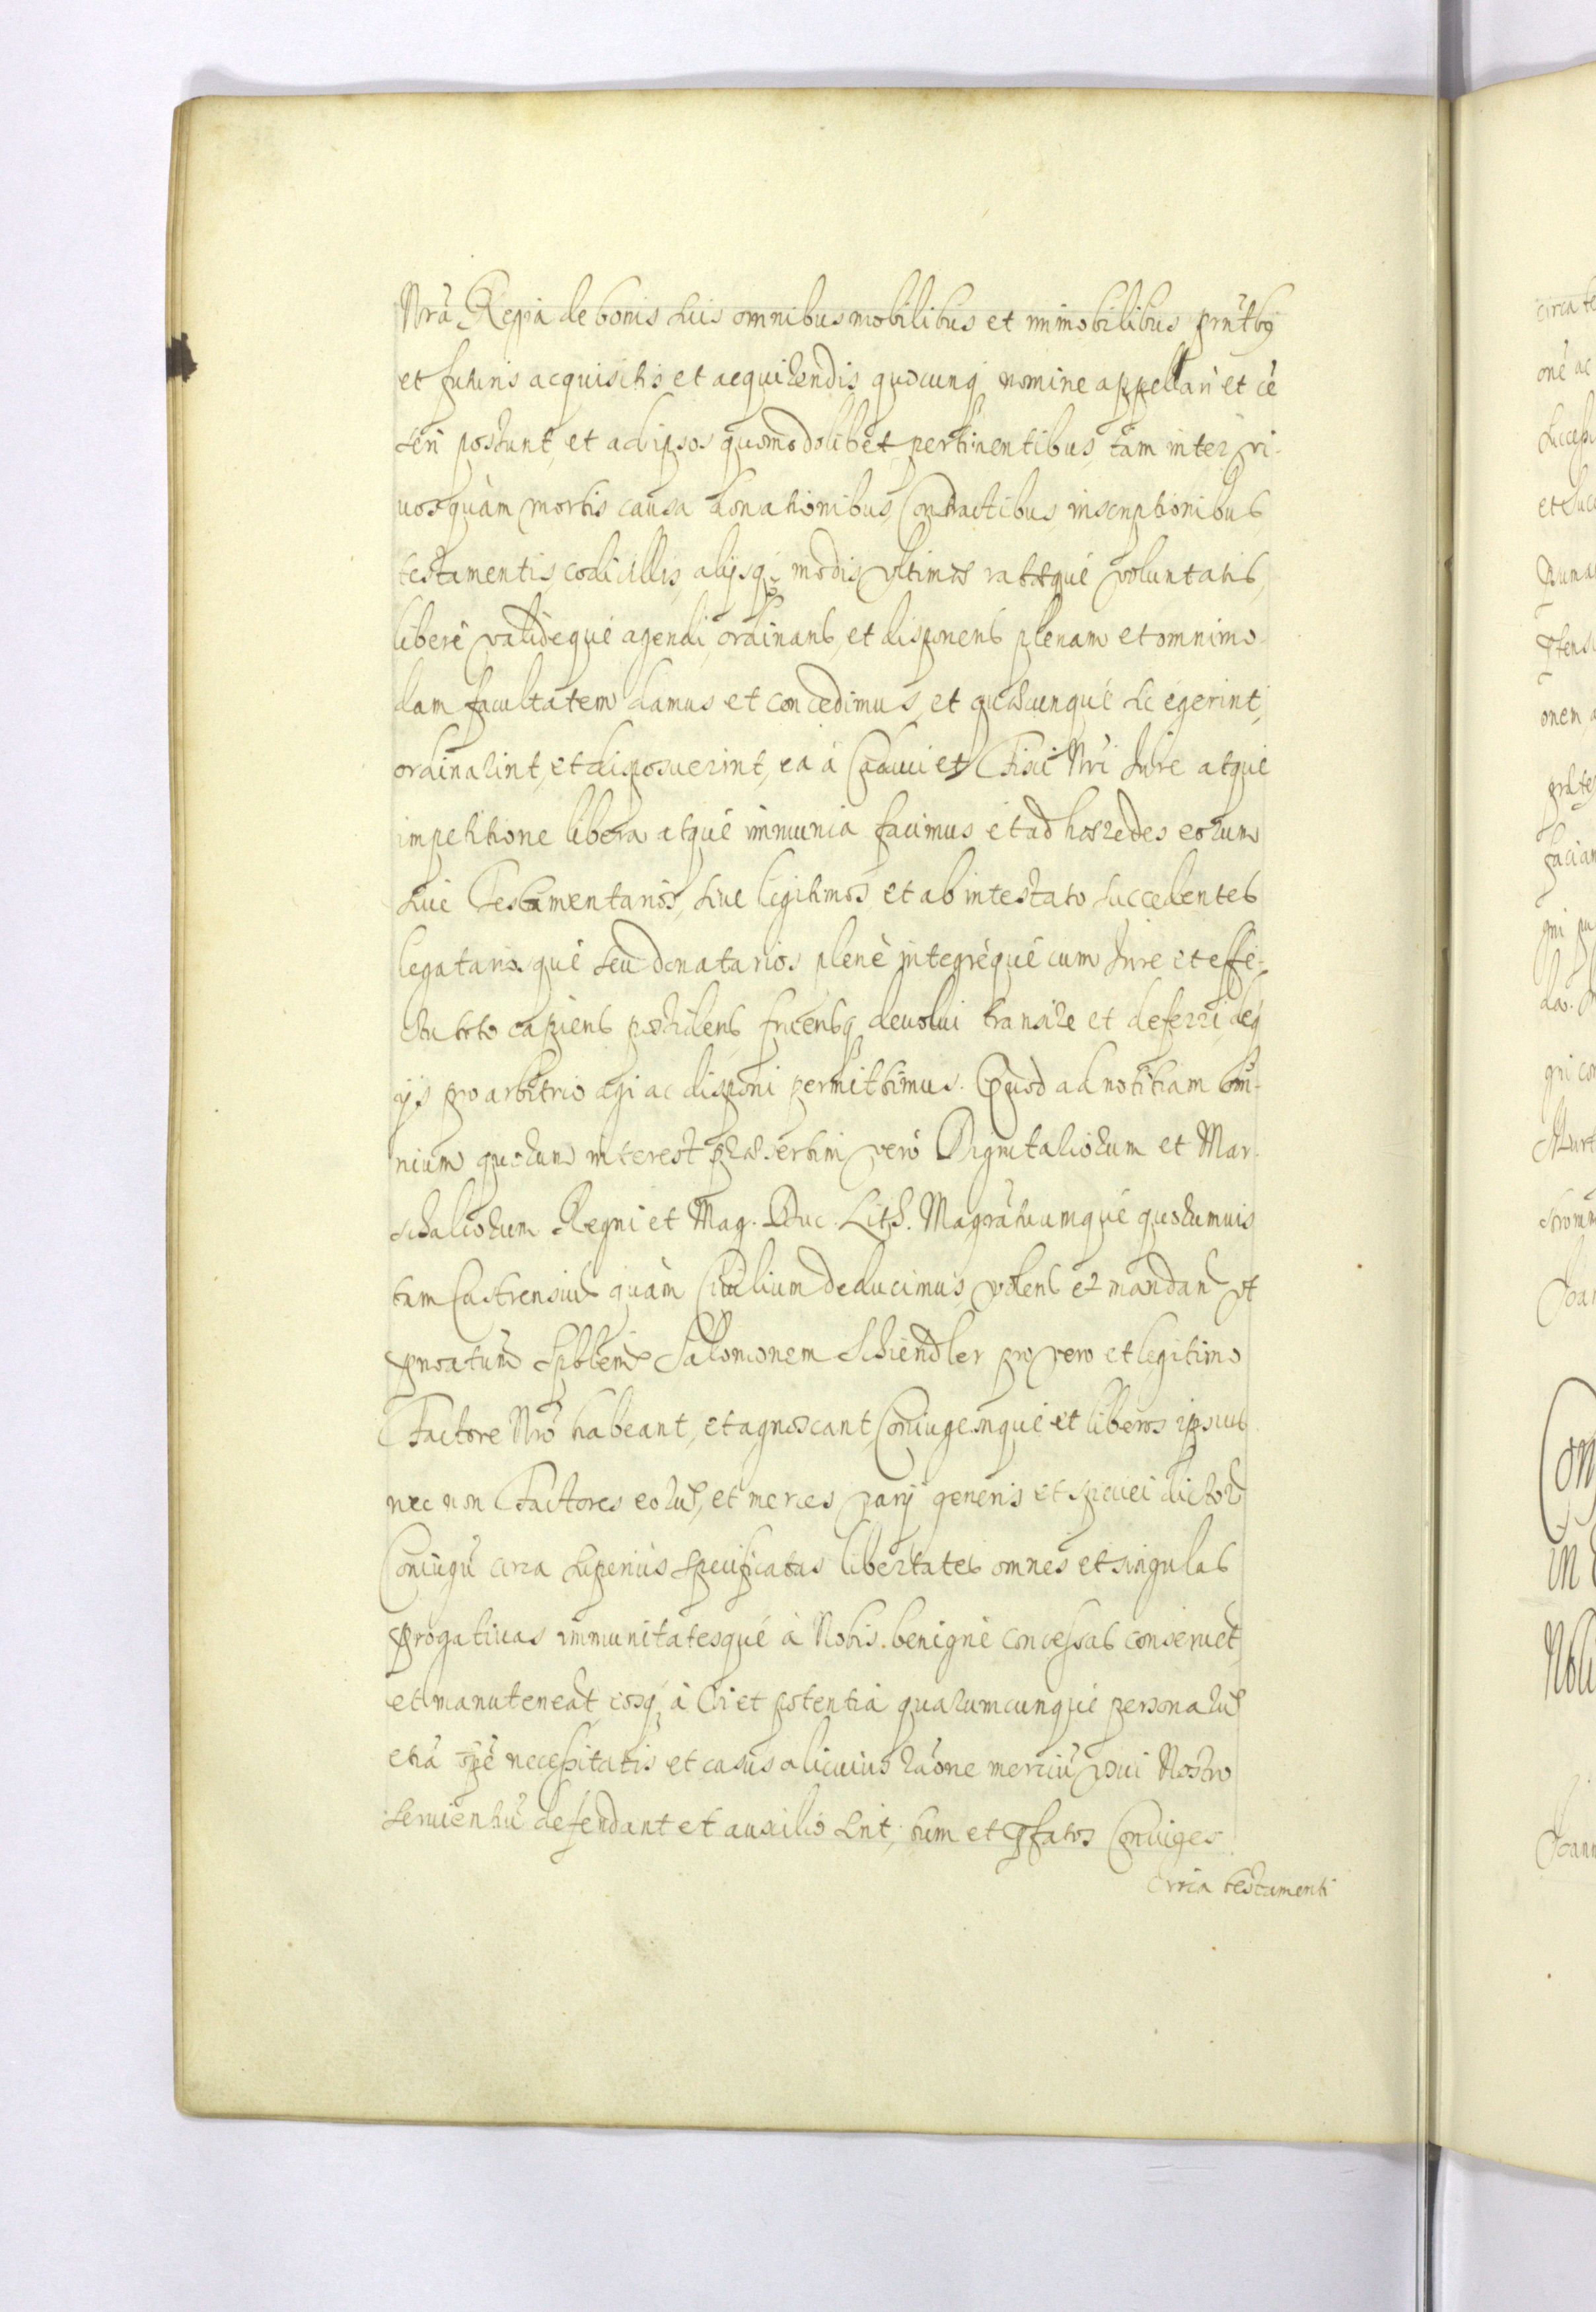 Nrâ Regia de bonis suis omnibus mobilibus et immobilibus prñtbg
et futuris acquisitis et acquirendis quocunq nomine appellari et cē
seri possunt, et ad ipsos quomodolibet pertinentibus, tam inter vi-
uos quàm mortis causa donationibus, Contractibus, inscriptionibus,
testamentis, codicillis, alijsq; modis vltimæ ratæqué voluntatis,
liberè validequé agendi, ordinand, et disponend plenam et omnimo-
dam facultatem damus et concedimus, et quæcunqué sic egerint,
ordinarint, et disposuerint, ea à Caduci et Fisci Nri Iure atqué
impetitione libera atqué immunia facimus et ad hæredes eorum
siue Testamentarios, siue legitimos, et ab intestato succedentes
legatariosqué seu donatarios plenè integrèqué cum Iure et effe-
ctu toto capiend possidend fruendq deuolui transire et deferri, deq
ijs pro arbitrio agi ac disponi permittimus. Quod ad notitiam om-
nium quorum interest præsertim verò Dignitariorum et Mar-
schaliorum Regni et Mag. Duc. Lith. Magrãtuumqué quorumuis
tam Castrensiũ quàm Ciuilium deducimus, volend et mandand vt
prnoatum Spblem Salomonem Schiendler pro vero et legitimo
Factore Nrõ habeant, et agnoscant, Coniugemqué et liberos ipsius
nec non Factores eorũ, et merces varij generis et speciei dictor
Coniugũ circa superius specificatas libertates omnes et singulas
prrogatiuas immunitatesqué à Nobis benignè concessas conseruet
et manuteneat, eosq; à Vi et potentia quarumcunqué personarũ
etiã opè necessitatis et casus alicuius rãone merciũ vsui Nostro
seruientiũ defendant et auxilio sint, tum et pfatos Coniuges
circa testamenti